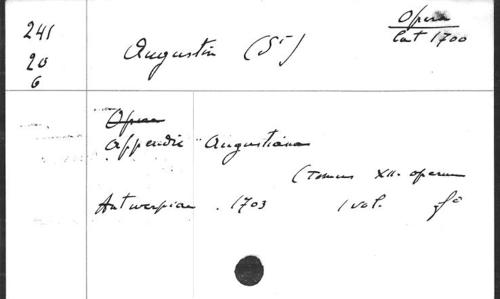 241
20
6
Augustin (St)
Opera
lat 1700
Opera
Appendix Augustiana
(Tomus XII. operum
Antwerpiae. 1703 1 vol. fo